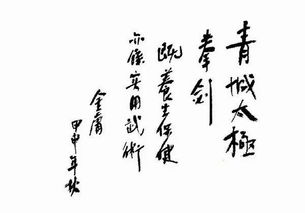 青城太極
拳剑
既养生保健
亦係实用武術
金庸
甲申年秋